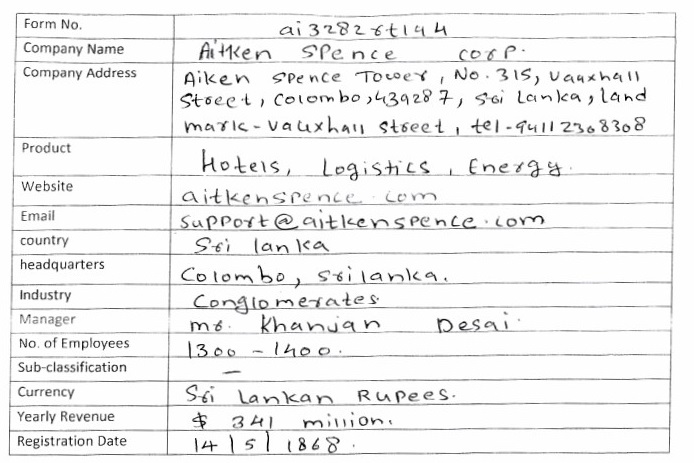 Form No. ai32828t144
Company Name Aitken Spence corp.
Company Address Aiken Spence Tower, No. 315, Vauxhall
Street, Colombo, 439287, Sri Lanka, land
mark - Vauxhall Street, tel - 94112308308
Product Hotels, Logistics, Energy.
Website aitkenspence.com
Email support@aitkenspence.com
country Sri lanka
headquarters Colombo, Srilanka.
Industry Conglomerates.
Manager mr. Khanjan Desai.
No. of Employees 1300 - 1400.
Sub-classification —
Currency Sri Lankan Rupees.
Yearly Revenue $ 341 million.
Registration Date 14|5|1868.